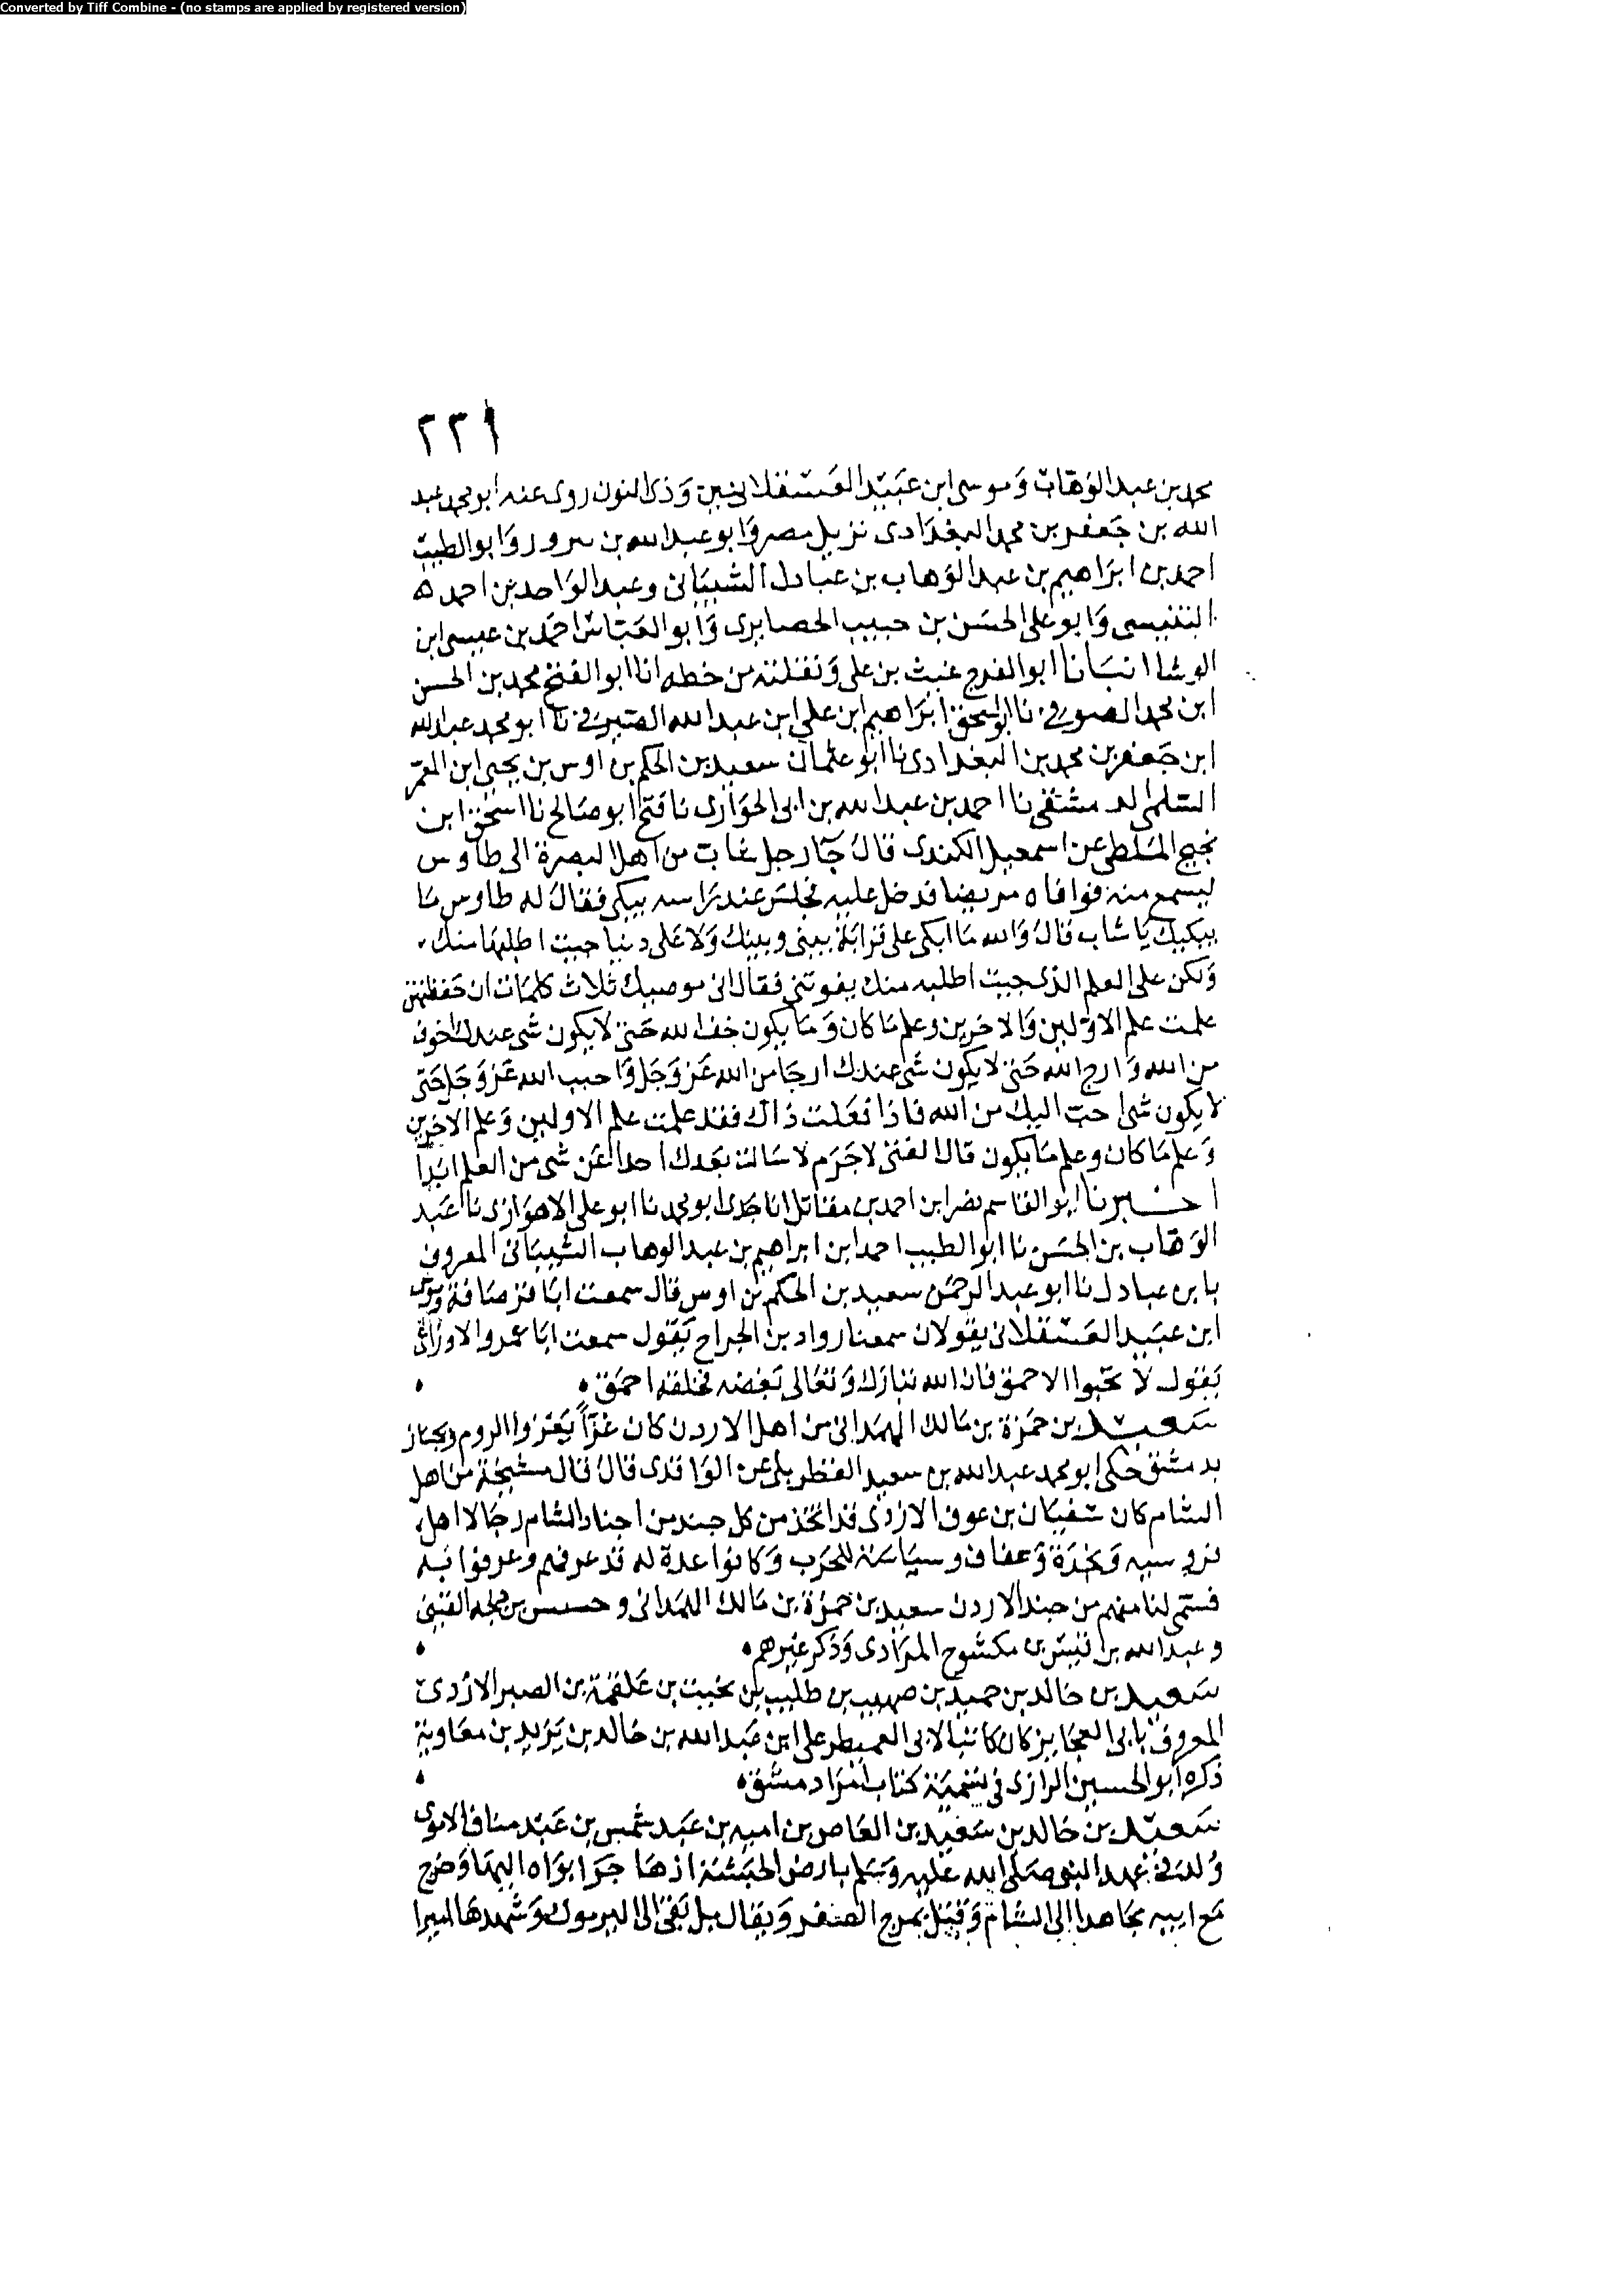 Converted by Tiff Combine - (no stamps are applied by registered version)
٢٢٦
محمد بن عبد الوهاب وموسى ابن عبيد العسقلانيين وذى النون روى عنه ابو محمد عبد
الله بن جعفر بن محمد البغدادى نزيل مصر وابو عبد الله بن سرور وابو الطيب
احمد بن ابراهيم بن عبد الوهاب بن عبادل الشيبانى وعبد الواحد بن احمد ه
التنيسى وابو على الحسن بن حبيب الحصايرى وابو العباس احمد بن عيسى ابن
الوشا انبانا ابو الفرج غيث بن على ونقلته من خطه انا ابو الفتح محمد بن الحسن
ابن محمد الصوفى نا ابو اسحق ابراهيم ابن على ابن عبد الله نا ابو محمد عبد الله
ابن جعفر بن محمد بن البغدادى نا ابو عثمان سعيد بن الحكم بن اوس بن يحيى ابن المعمر
السلمى الدمشقى نا احمد بن عبد الله بن ابى الحوارى نا فتح ابو صالح نا اسحق ابن
نجيح الملطى عن اسمعيل الكندى قال جا رجل شاب من اهل البصرة الى طاوس
ليسمع منه فوافاه مريضا فدخل عليه فجلس عند راسه يبكى فقال له طاوس ما
يبكيك يا شاب قال والله ما ابكى على قرابة بينى وبينك ولا على دنيا جيت اطلبها منك
ولكن على العلم الذى جيت اطلبه منك يفوتنى فقال انى موصيك ثلاث كلمات ان حفظتهن
علمت علم الاولين والاخرين وعلم ما كان وما يكون خف الله حتى لا يكون شى عندك اخوف
من الله وارج الله حتى لا يكون شى عندك ارجا من الله عز وجل واحبب الله عز وجل حتى
لا يكون شى احب اليك من الله فاذا فعلت ذاك فقد علمت علم الاولين وعلم الاخرين
وعلم ما كان وعلم ما يكون قال الفتى لا جرم لا سالت بعدك احدا عن شى من العلم ابدا
اخبرنا ابو القاسم نصر ابن احمد بن مقاتل انا جدى ابو محمد نا ابو على الاهوازى نا عبد
الوهاب بن الحسن نا ابو الطيب احمد ابن ابراهيم بن عبد الوهاب الشيبانى المعروف
بابن عبادل نا ابو عبد الرحمن سعيد بن الحكم بن اوس قال سمعت ابا قرصافة وموسى
ابن عبيد العسقلانى يقولان سمعنا رواد بن الجراح يقول سمعت ابا عمرو الاوزاعى
يقول لا تحبوا الاحمق فان الله تبارك وتعالى بغضه فخلقه احمق
سعيد بن حمزة بن مالك الهمدانى من اهل الاردن كان غزا يغزوا الروم ويجتاز
بدمشق حكى ابو محمد عبد الله بن سعيد القطربلى عن الواقدى قال قال مشيخة من اهل
الشام كان سفيان بن عوف الازدى قد اتخذ من كل جند من اجناد الشام رجالا اهل
فروسيه ونجدة وعفاف وسياسة للحرب وكانوا عدة له قد عرفهم وعرفوا به
فسمى لنا منهم من جند الاردن سعيد بن حمزة بن مالك الهمدانى و بن القينى
وعبد الله بن قيس بن مكشوح المرادى وذكر غيرهم
سعيد بن خالد بن حميد بن صهيب بن طليب بن نخيت بن علقمة بن الصبر الازدى
المعروف بابى العجايز كان كاتبا لابى العميطر على ابن عبد الله بن خالد بن يزيد بن معاوية
ذكره ابو الحسين الرازى فى تسمية كتاب امرا دمشق
سعيد بن خالد بن سعيد بن العاص بن اميه بن عبد شمس بن عبد مناف الاموى
ولد فى عهد النبى صلى الله عليه وسلم بارض الحبشة اذ هاجر ابواه اليها وخرج
مع ابيه مجاهدا الى الشام وقتل بمرج الصفر ويقال بل بقى الى اليرموك وشهدها اميرا